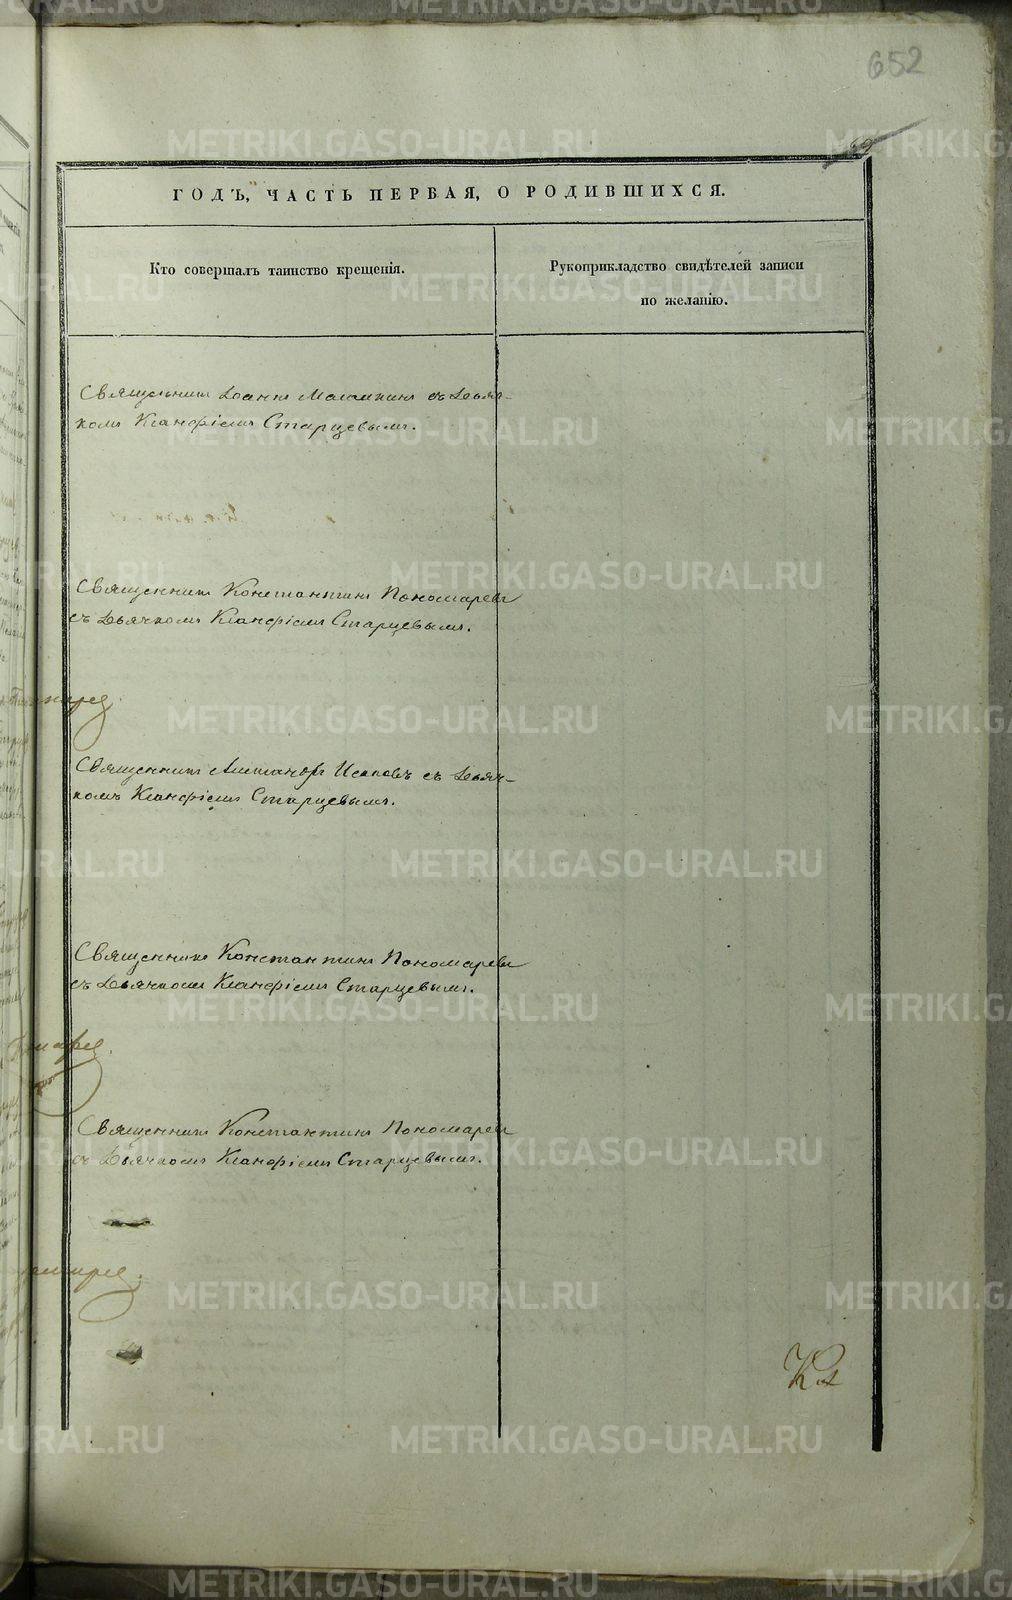 652
69
ГОДЪ, ЧАСТЬ ПЕРВАЯ, О РОДИВШИХСЯ.
Кто совершалъ таинство крещенія.
Рукоприкладство свидѣтелей записи
по желанію.
Священникъ Іоаннъ съ Дьяч-
комъ Ксанфіемъ Старцевымъ.
Священникъ Константинъ Пономаревъ
съ Дьячкомъ Ксанфіемъ Старцевымъ.
Священникъ Александръ Исаковъ съ Дьяч-
комъ Ксанфіемъ Старцевымъ.
Священникъ Константинъ Пономаревъ
съ Дьячкомъ Ксанфіемъ Старцевымъ.
Священникъ Константинъ Пономаревъ
съ Дьячкомъ Ксанфіемъ Старцевымъ.
METRIKI.GASO-URAL.RU